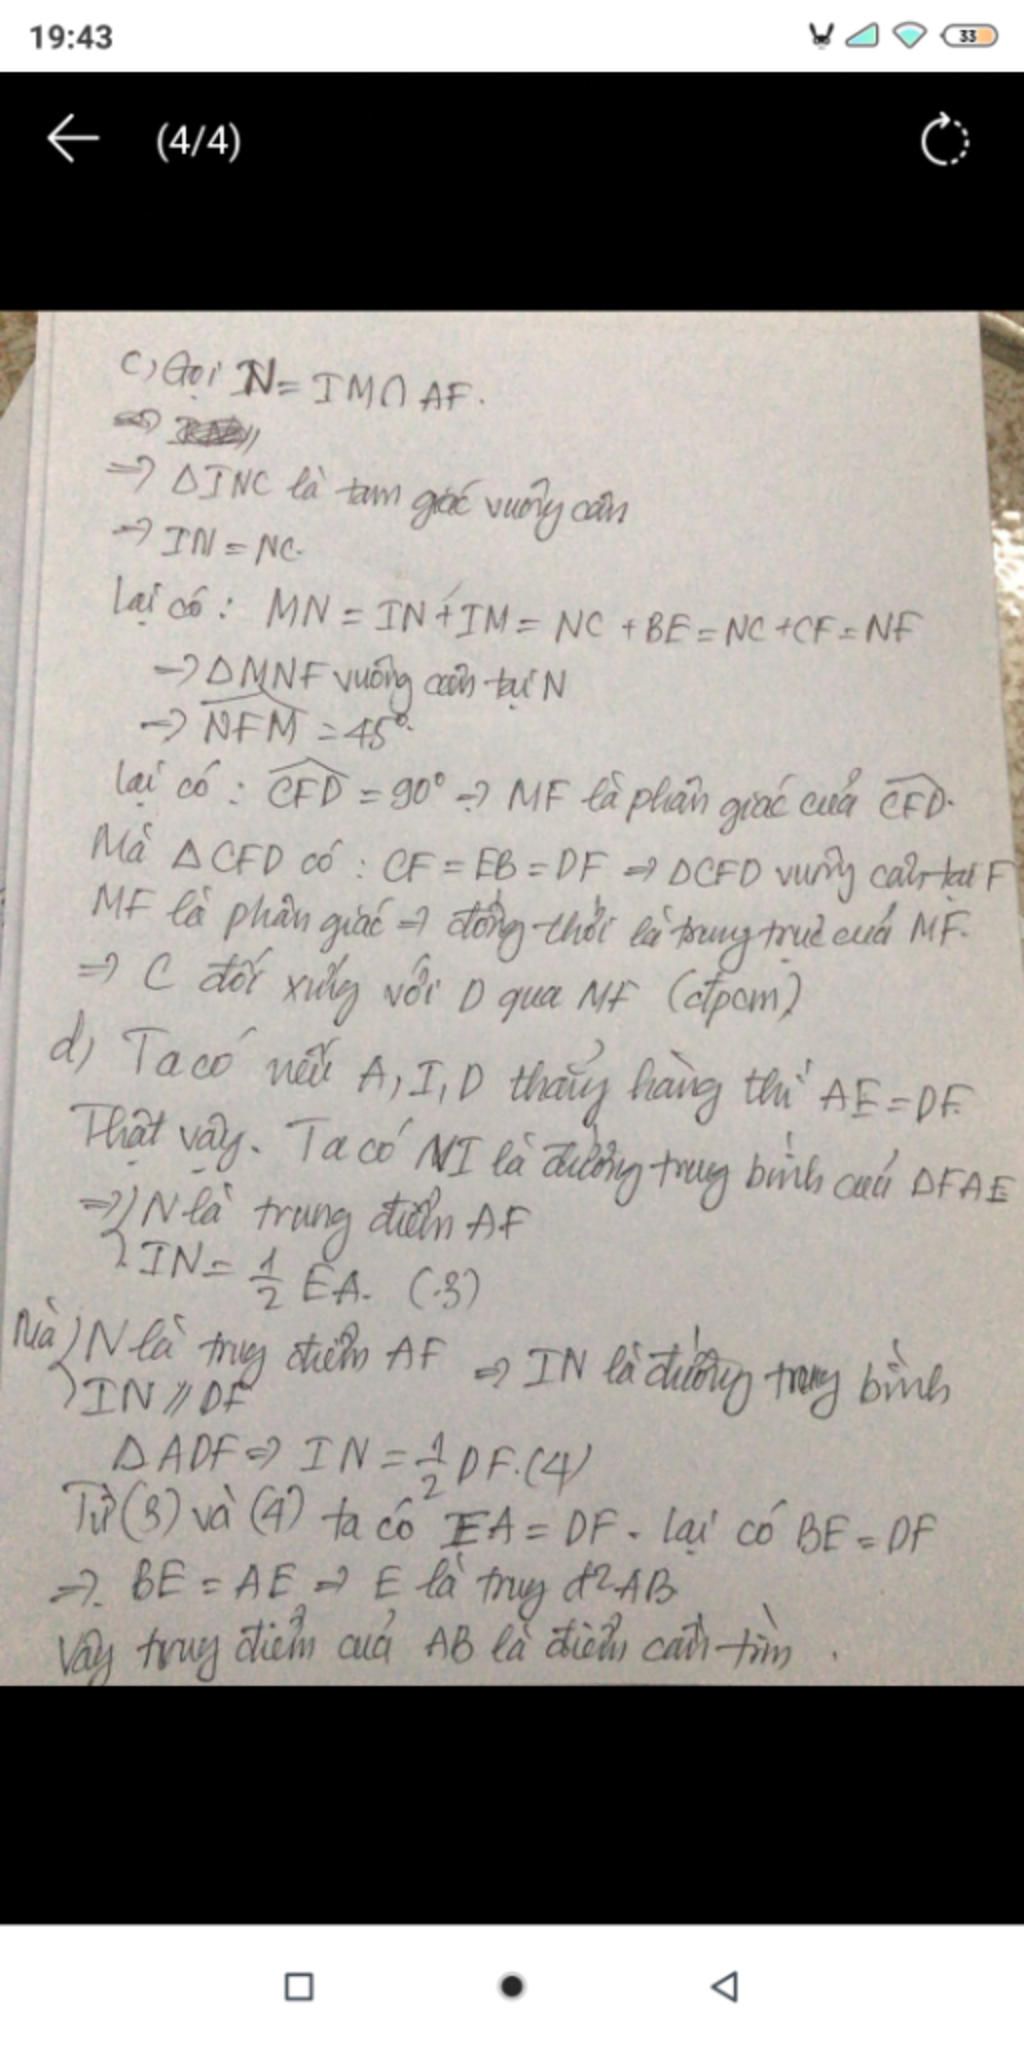 19:43
33
(4/4)
c) Gọi N = IM ∩ AF.
=> ΔINC là tam giác vuông cân
=> IN = NC.
Lại có : MN = IN + IM = NC + BE = NC + CF = NF
-> ΔMNF vuông cân tại N
-> NFM = 45°.
Lại có : CFD = 90° => MF là phân giác của CFD.
Mà ΔCFD có : CF = EB = DF => ΔCFD vuông cân tại F
MF là phân giác => đồng thời là trung trực của MF.
=> C đối xứng với D qua MF (đpcm)
d) Ta có nếu A, I, D thẳng hàng thì AE = DF.
Thật vậy. Ta có NI là đường trung bình của ΔFAE
=> N là trung điểm AF
IN = 1/2 EA. (3)
Mà N là trung điểm AF => IN là đường trung bình
IN // DF
ΔADF => IN = 1/2 DF. (4)
Từ (3) và (4) ta có EA = DF. Lại có BE = DF
=> BE = AE => E là trung đ² AB
Vậy trung điểm của AB là điểm cần tìm.